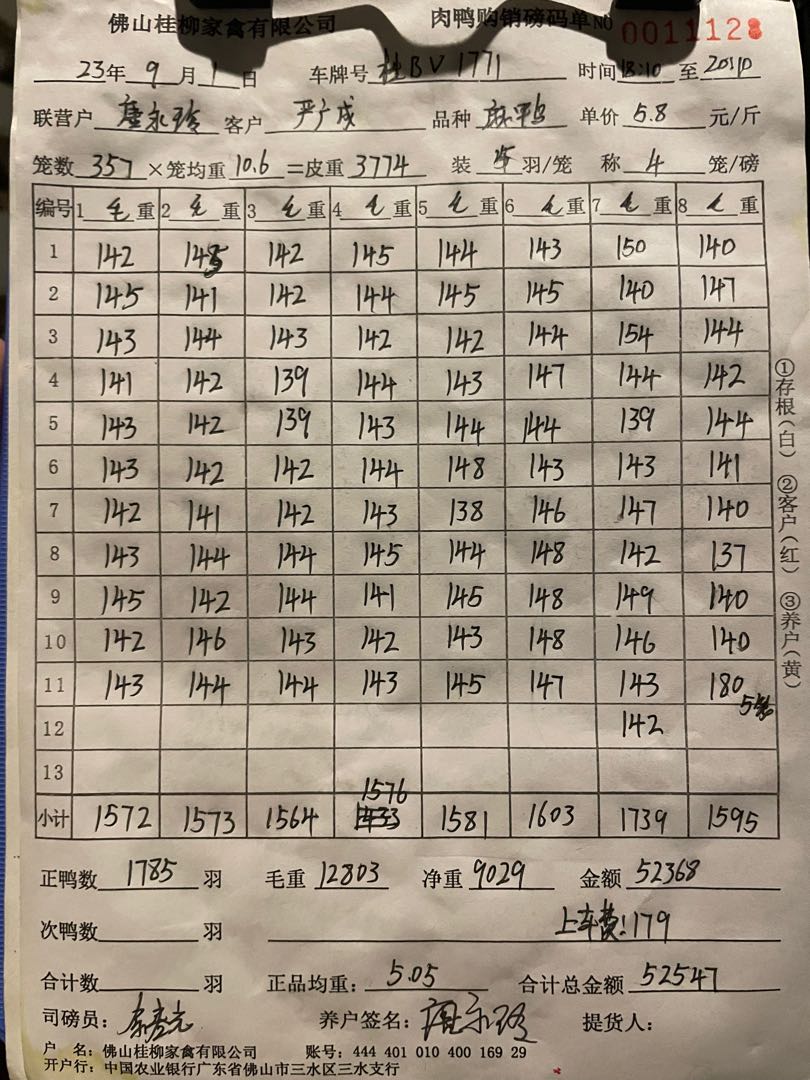 佛山桂柳家禽有限公司 肉鸭购销磅码单 NO 0011128
23年 9 月 1 日 车牌号 桂BV1771 时间 18:10 至 20:10
联营户 唐永玲 客户 严广成 品种 麻鸭 单价 5.8 元/斤
笼数 357 ×笼均重 10.6 =皮重 3774 装 5 羽/笼 称 4 笼/磅
编号 1 毛 重 2 毛 重 3 毛 重 4 毛 重 5 毛 重 6 毛 重 7 毛 重 8 毛 重
1 142 145 142 145 144 143 150 140
2 145 141 142 144 145 145 140 147
3 143 144 143 142 142 144 154 144
4 141 142 139 144 143 147 144 142
5 143 142 139 143 144 144 139 144
6 143 142 142 144 148 143 143 141
7 142 141 142 143 138 146 147 140
8 143 144 144 145 144 148 142 137
9 145 142 144 141 145 148 149 140
10 142 146 143 142 143 148 146 140
11 143 144 144 143 145 147 143 180
5笼
12 142
13
小计 1572 1573 1564 1576 1581 1603 1739 1595
正鸭数 1785 羽 毛重 12803 净重 9029 金额 52368
次鸭数 羽 上车费:179
合计数 羽 正品均重: 5.05 合计总金额 52547
司磅员: 养户签名: 唐永玲 提货人:
户 名: 佛山桂柳家禽有限公司 账号: 444 401 010 400 169 29
开户行: 中国农业银行广东省佛山市三水区三水支行
①存根(白) ②客户(红) ③养户(黄)